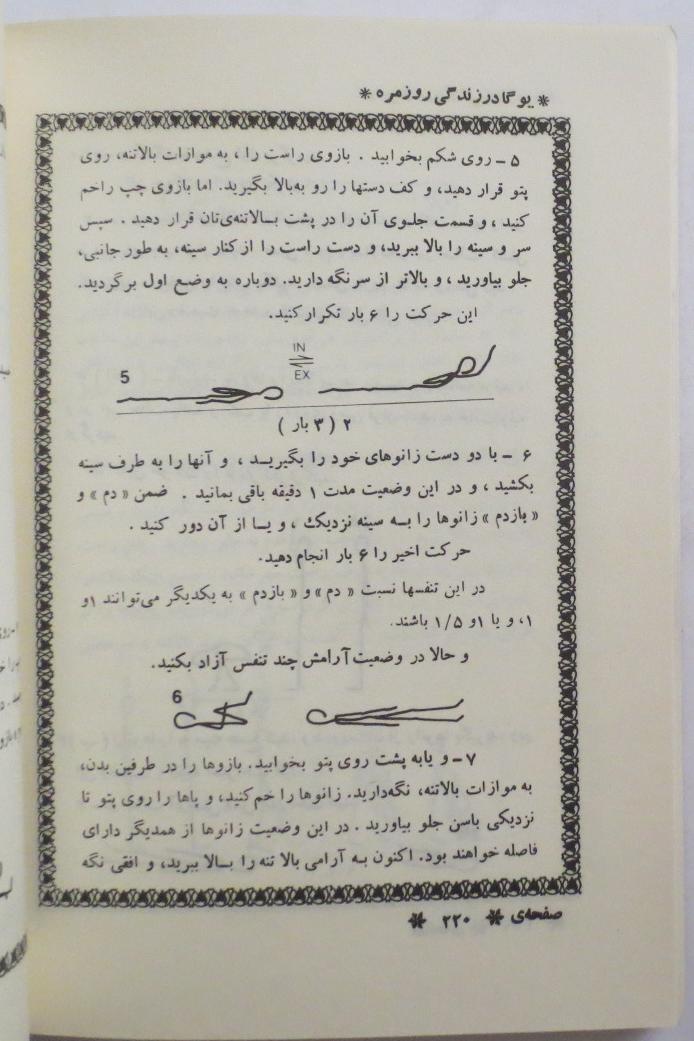 * یوگا در زندگی روزمره *
۵ ـ روی شکم بخوابید . بازوی راست را ، به موازات بالاتنه، روی
پتو قرار دهید، و کف دستها را رو به‌بالا بگیرید. اما بازوی چپ راخم
کنید ، و قسمت جلوی آن را در پشت بالاتنه‌ی‌تان قرار دهید . سپس
سر و سینه را بالا ببرید، و دست راست را از کنار سینه، به طور جانبی،
جلو بیاورید ، و بالاتر از سر نگه دارید. دوباره به وضع اول برگردید.
این حرکت را ۶ بار تکرار کنید.
IN
EX
5
۲ ( ۳ بار )
۶ ـ با دو دست زانوهای خود را بگیرید ، و آنها را به طرف سینه
بکشید ، و در این وضعیت مدت ۱ دقیقه باقی بمانید . ضمن « دم » و
« بازدم » زانوها را به سینه نزدیک ، و یا از آن دور کنید .
حرکت اخیر را ۶ بار انجام دهید.
در این تنفسها نسبت « دم » و « بازدم » به یکدیگر می‌توانند ۱ و
۱، و یا ۱ و ۱/۵ باشند.
و حالا در وضعیت آرامش چند تنفس آزاد بکنید.
6
۷ ـ و یابه پشت روی پتو بخوابید. بازوها را در طرفین بدن،
به موازات بالاتنه، نگه‌دارید. زانوها را خم‌کنید، و پاها را روی پتو تا
نزدیکی باسن جلو بیاورید . در این وضعیت زانوها از همدیگر دارای
فاصله خواهند بود. اکنون به آرامی بالا تنه را بالا ببرید، و افقی نگه
صفحه‌ی * ۲۲۰ *